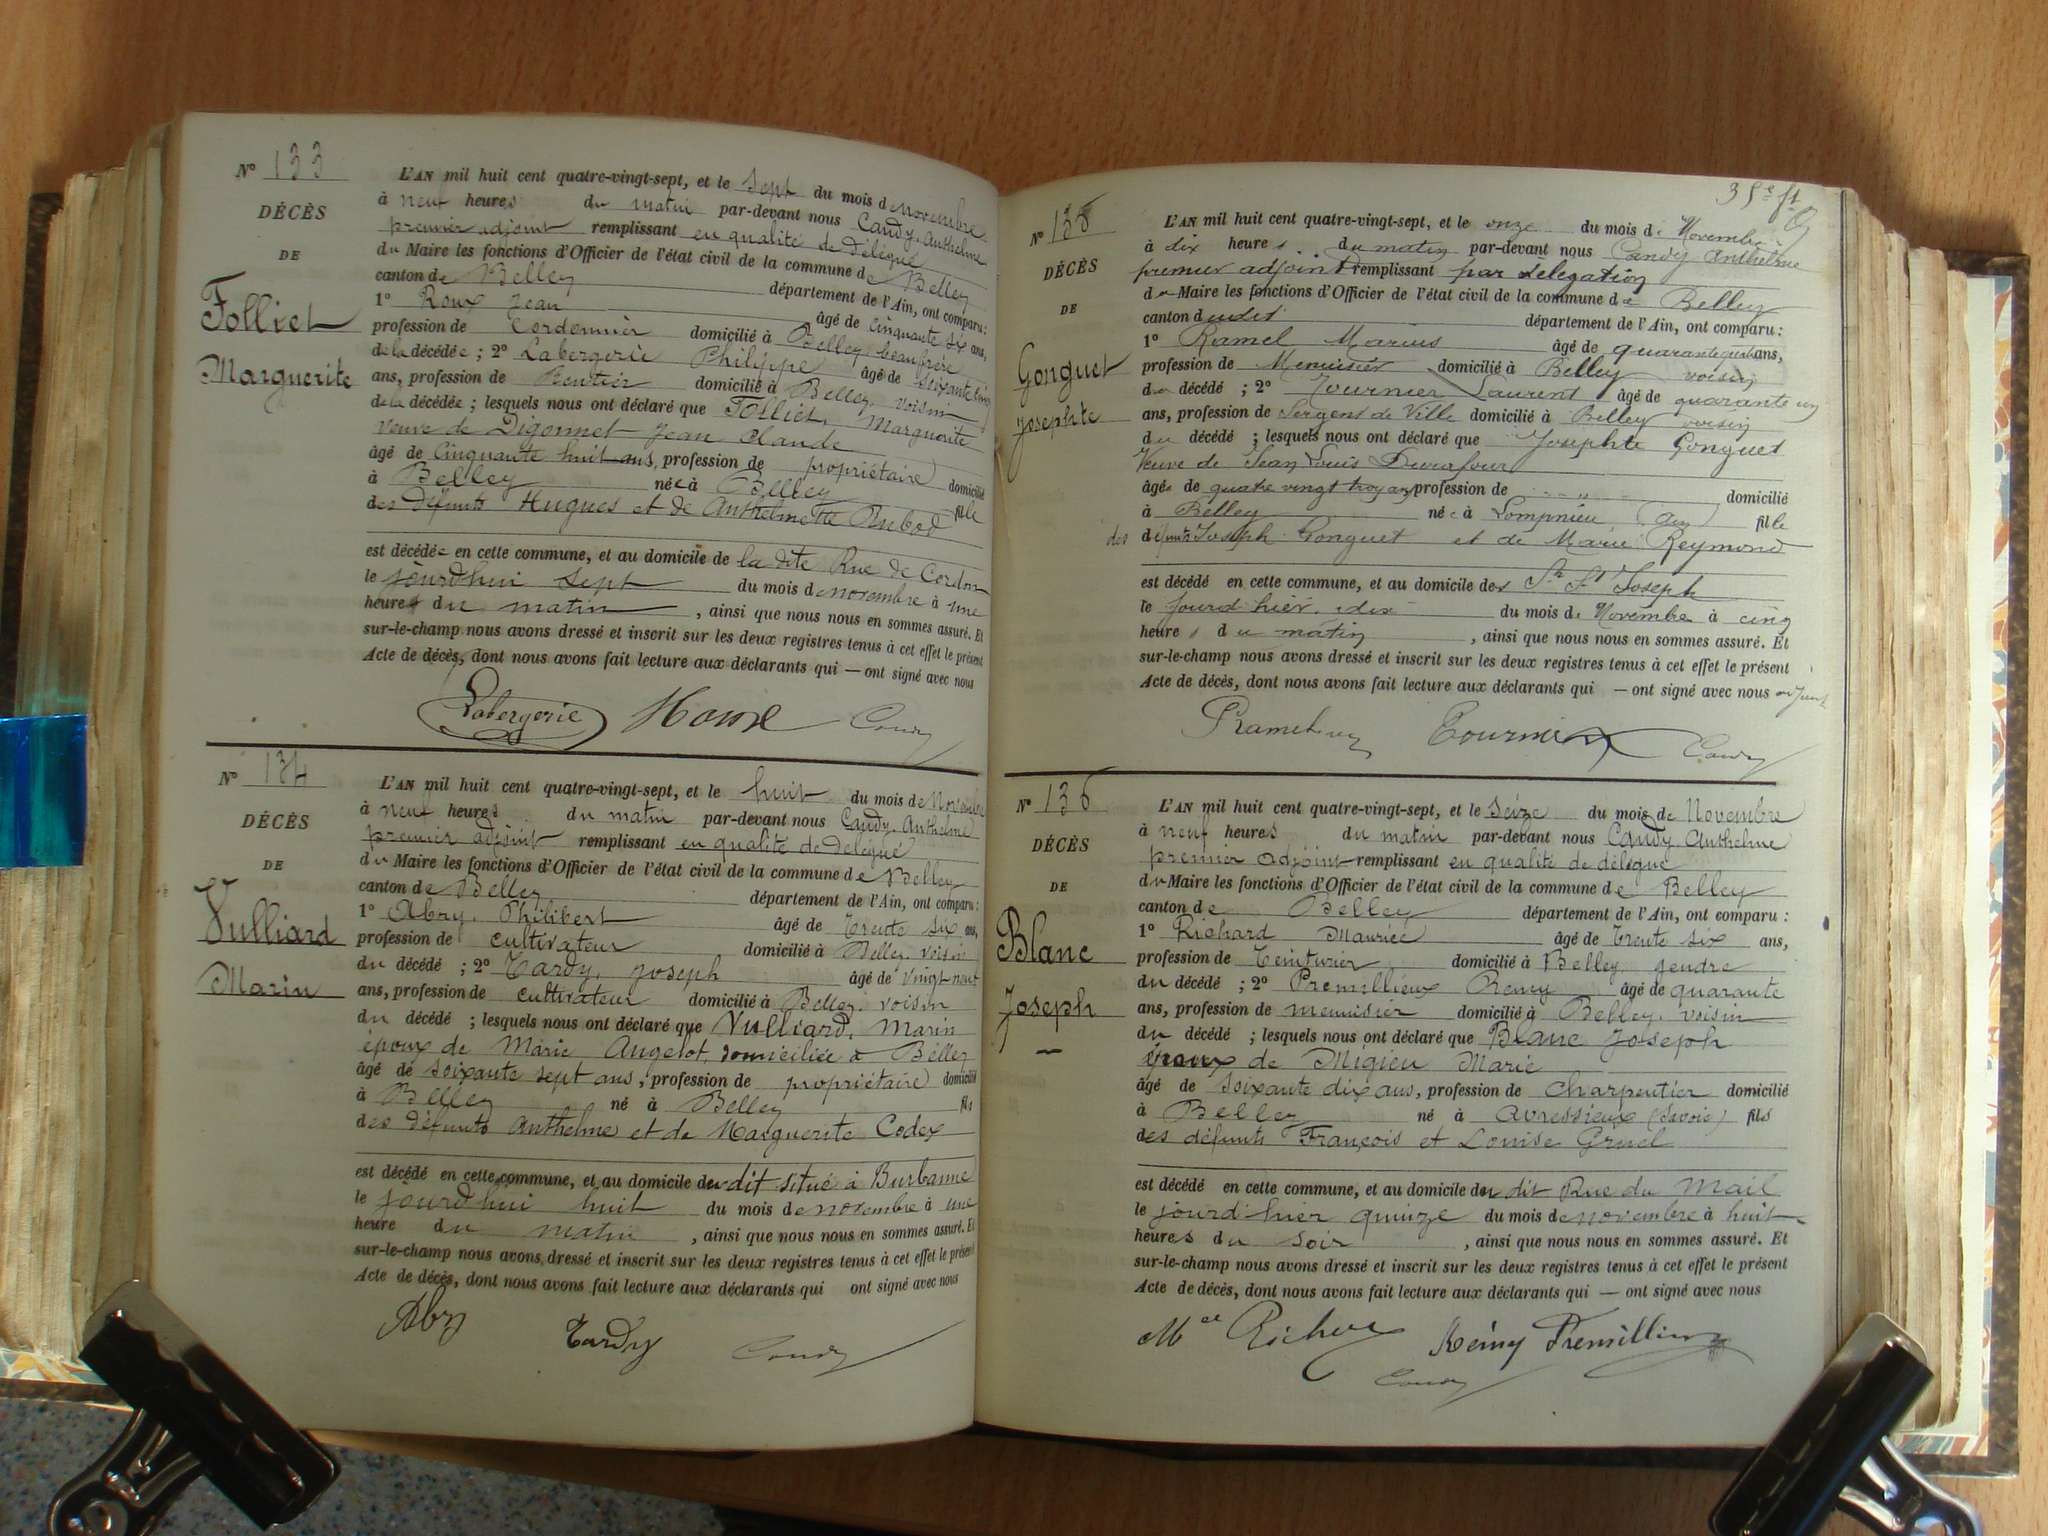 N° 133
DÉCÈS
DE
Folliet
Marguerite
L'AN mil huit cent quatre-vingt-sept, et le sept du mois de novembre
à neuf heures du matin par-devant nous Candy, Anthelme
premier adjoint remplissant en qualité de délégué
du Maire les fonctions d'Officier de l'état civil de la commune de Belley
canton de Belley département de l'Ain, ont comparu :
1° Roux Jean âgé de cinquante six ans,
profession de Cordonnier domicilié à Belley, beaufrère
de la décédée ; 2° Labergerie Philippe âgé de soixante cinq
ans, profession de Rentier domicilié à Belley, voisin
de la décédée ; lesquels nous ont déclaré que Folliet, Marguerite
veuve de Digonnet Jean Claude
âgé de Cinquante huit ans, profession de propriétaire domicilié
à Belley née à Belley fille
des défunts Hugues et de Anthelmette Rubod
est décédée en cette commune, et au domicile de la dite Rue de Cordon
le jourd'hui sept du mois de novembre à une
heure du matin , ainsi que nous nous en sommes assuré. Et
sur-le-champ nous avons dressé et inscrit sur les deux registres tenus à cet effet le présent
Acte de décès, dont nous avons fait lecture aux déclarants qui — ont signé avec nous
Labergerie Candy
N° 134
DÉCÈS
DE
Vulliard
Marin
L'AN mil huit cent quatre-vingt-sept, et le huit du mois de Novembre
à neuf heures du matin par-devant nous Candy, Anthelme
premier adjoint remplissant en qualité de délégué
du Maire les fonctions d'Officier de l'état civil de la commune de Belley
canton de Belley département de l'Ain, ont comparu :
1° Abry, Philibert âgé de trente six ans,
profession de cultivateur domicilié à Belley, voisin
du décédé ; 2° Tardy, Joseph âgé de vingt neuf
ans, profession de cultivateur domicilié à Belley, voisin
du décédé ; lesquels nous ont déclaré que Vulliard, Marin
époux de Marie Angelot, domiciliée à Belley
âgé de soixante sept ans, profession de propriétaire domicilié
à Belley né à Belley fils
des défunts Anthelme et de Marguerite Codex
est décédé en cette commune, et au domicile du dit situé à Burbanne
le jourd'hui huit du mois de novembre à une
heure du matin , ainsi que nous nous en sommes assuré. Et
sur-le-champ nous avons dressé et inscrit sur les deux registres tenus à cet effet le présent
Acte de décès, dont nous avons fait lecture aux déclarants qui ont signé avec nous
Abry Tardy Candy
N° 135
DÉCÈS
DE
Gonguet
Josephte
L'AN mil huit cent quatre-vingt-sept, et le onze du mois de Novembre
à dix heures du matin par-devant nous Candy Anthelme
premier adjoint remplissant par délégation
du Maire les fonctions d'Officier de l'état civil de la commune de Belley
canton dudit département de l'Ain, ont comparu :
1° Ramel Marius âgé de quarante quatre ans,
profession de Menuisier domicilié à Belley voisin
du décédé ; 2° Tournier Laurent âgé de quarante un
ans, profession de Sergent de Ville domicilié à Belley voisin
du décédé ; lesquels nous ont déclaré que Josephte Gonguet
Veuve de Jean Louis Dufour
âgée de quatre vingt trois ans profession de " domicilié
à Belley née à Lompnieu, (Ain) fille
des défunts Joseph Gonguet et de Marie Reymond
est décédé en cette commune, et au domicile des Srs St Joseph
le jourd'hier, dix du mois de Novembre à cinq
heures du matin , ainsi que nous nous en sommes assuré. Et
sur-le-champ nous avons dressé et inscrit sur les deux registres tenus à cet effet le présent
Acte de décès, dont nous avons fait lecture aux déclarants qui — ont signé avec nous adjoint
Tournier Candy
N° 136
DÉCÈS
DE
Blanc
Joseph
L'AN mil huit cent quatre-vingt-sept, et le seize du mois de Novembre
à neuf heures du matin par-devant nous Candy Anthelme
premier adjoint remplissant en qualité de délégué
du Maire les fonctions d'Officier de l'état civil de la commune de Belley
canton de Belley département de l'Ain, ont comparu :
1° Richard Maurice âgé de trente six ans,
profession de teinturier domicilié à Belley, gendre
du décédé ; 2° Premillieux Remy âgé de quarante
ans, profession de menuisier domicilié à Belley, voisin
du décédé ; lesquels nous ont déclaré que Blanc Joseph
époux de Migieu Marie
âgé de soixante dix ans, profession de charpentier domicilié
à Belley né à Avressieux (Savoie) fils
des défunts François et Louise Gruel
est décédé en cette commune, et au domicile du dit Rue du Mail
le jourd'hier quinze du mois de novembre à huit
heures du soir , ainsi que nous nous en sommes assuré. Et
sur-le-champ nous avons dressé et inscrit sur les deux registres tenus à cet effet le présent
Acte de décès, dont nous avons fait lecture aux déclarants qui — ont signé avec nous
Rémy Premillieux
Candy